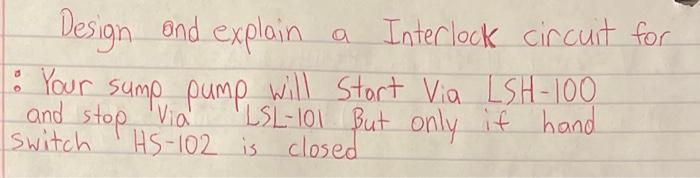 Design and explain a Interlock circuit for
: Your sump pump will Start Via LSH-100
and stop Via LSL-101 But only if hand
switch HS-102 is closed